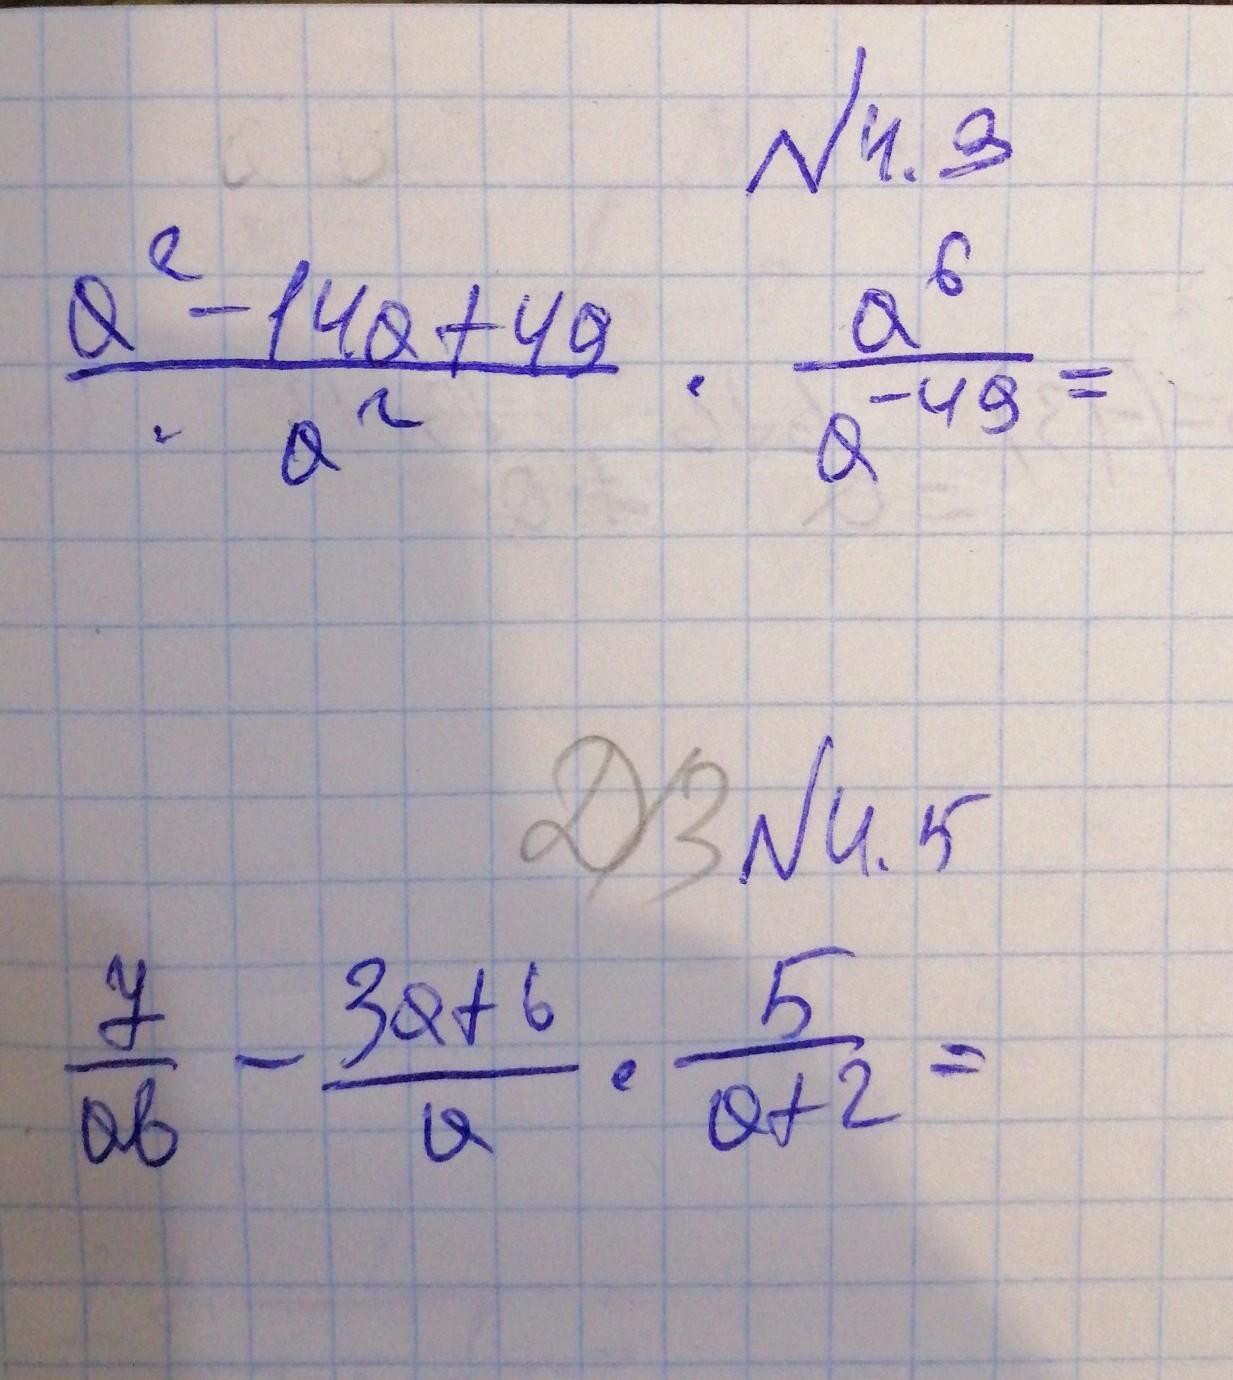 №4.9
a² - 14a + 49 / a² · a⁶ / a⁻⁴⁹ =
ДЗ №4.5
7 / ab - 3a + 6 / a · 5 / a + 2 =